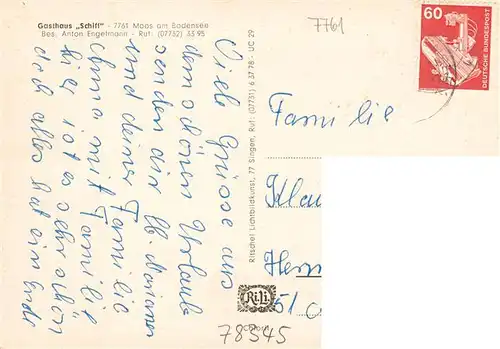 Gasthaus „Schiff" - 7761 Moos am Bodensee
Bes. Anton Engelmann - Ruf: (07732) 33 95
7761
60
DEUTSCHE BUNDESPOST
Viele Grüsse aus
dem schönen Urlaub
senden dir lb. Marianne
und deiner Familie
Anna mit Familie
hier ist es sehr schön
doch alles hat ein Ende
Ritschel Lichtbildkunst, 77 Singen, Ruf: (07731) 6 37 78 · UC 29
Familie
Klau
Herm
51
Ri.Li.
78345